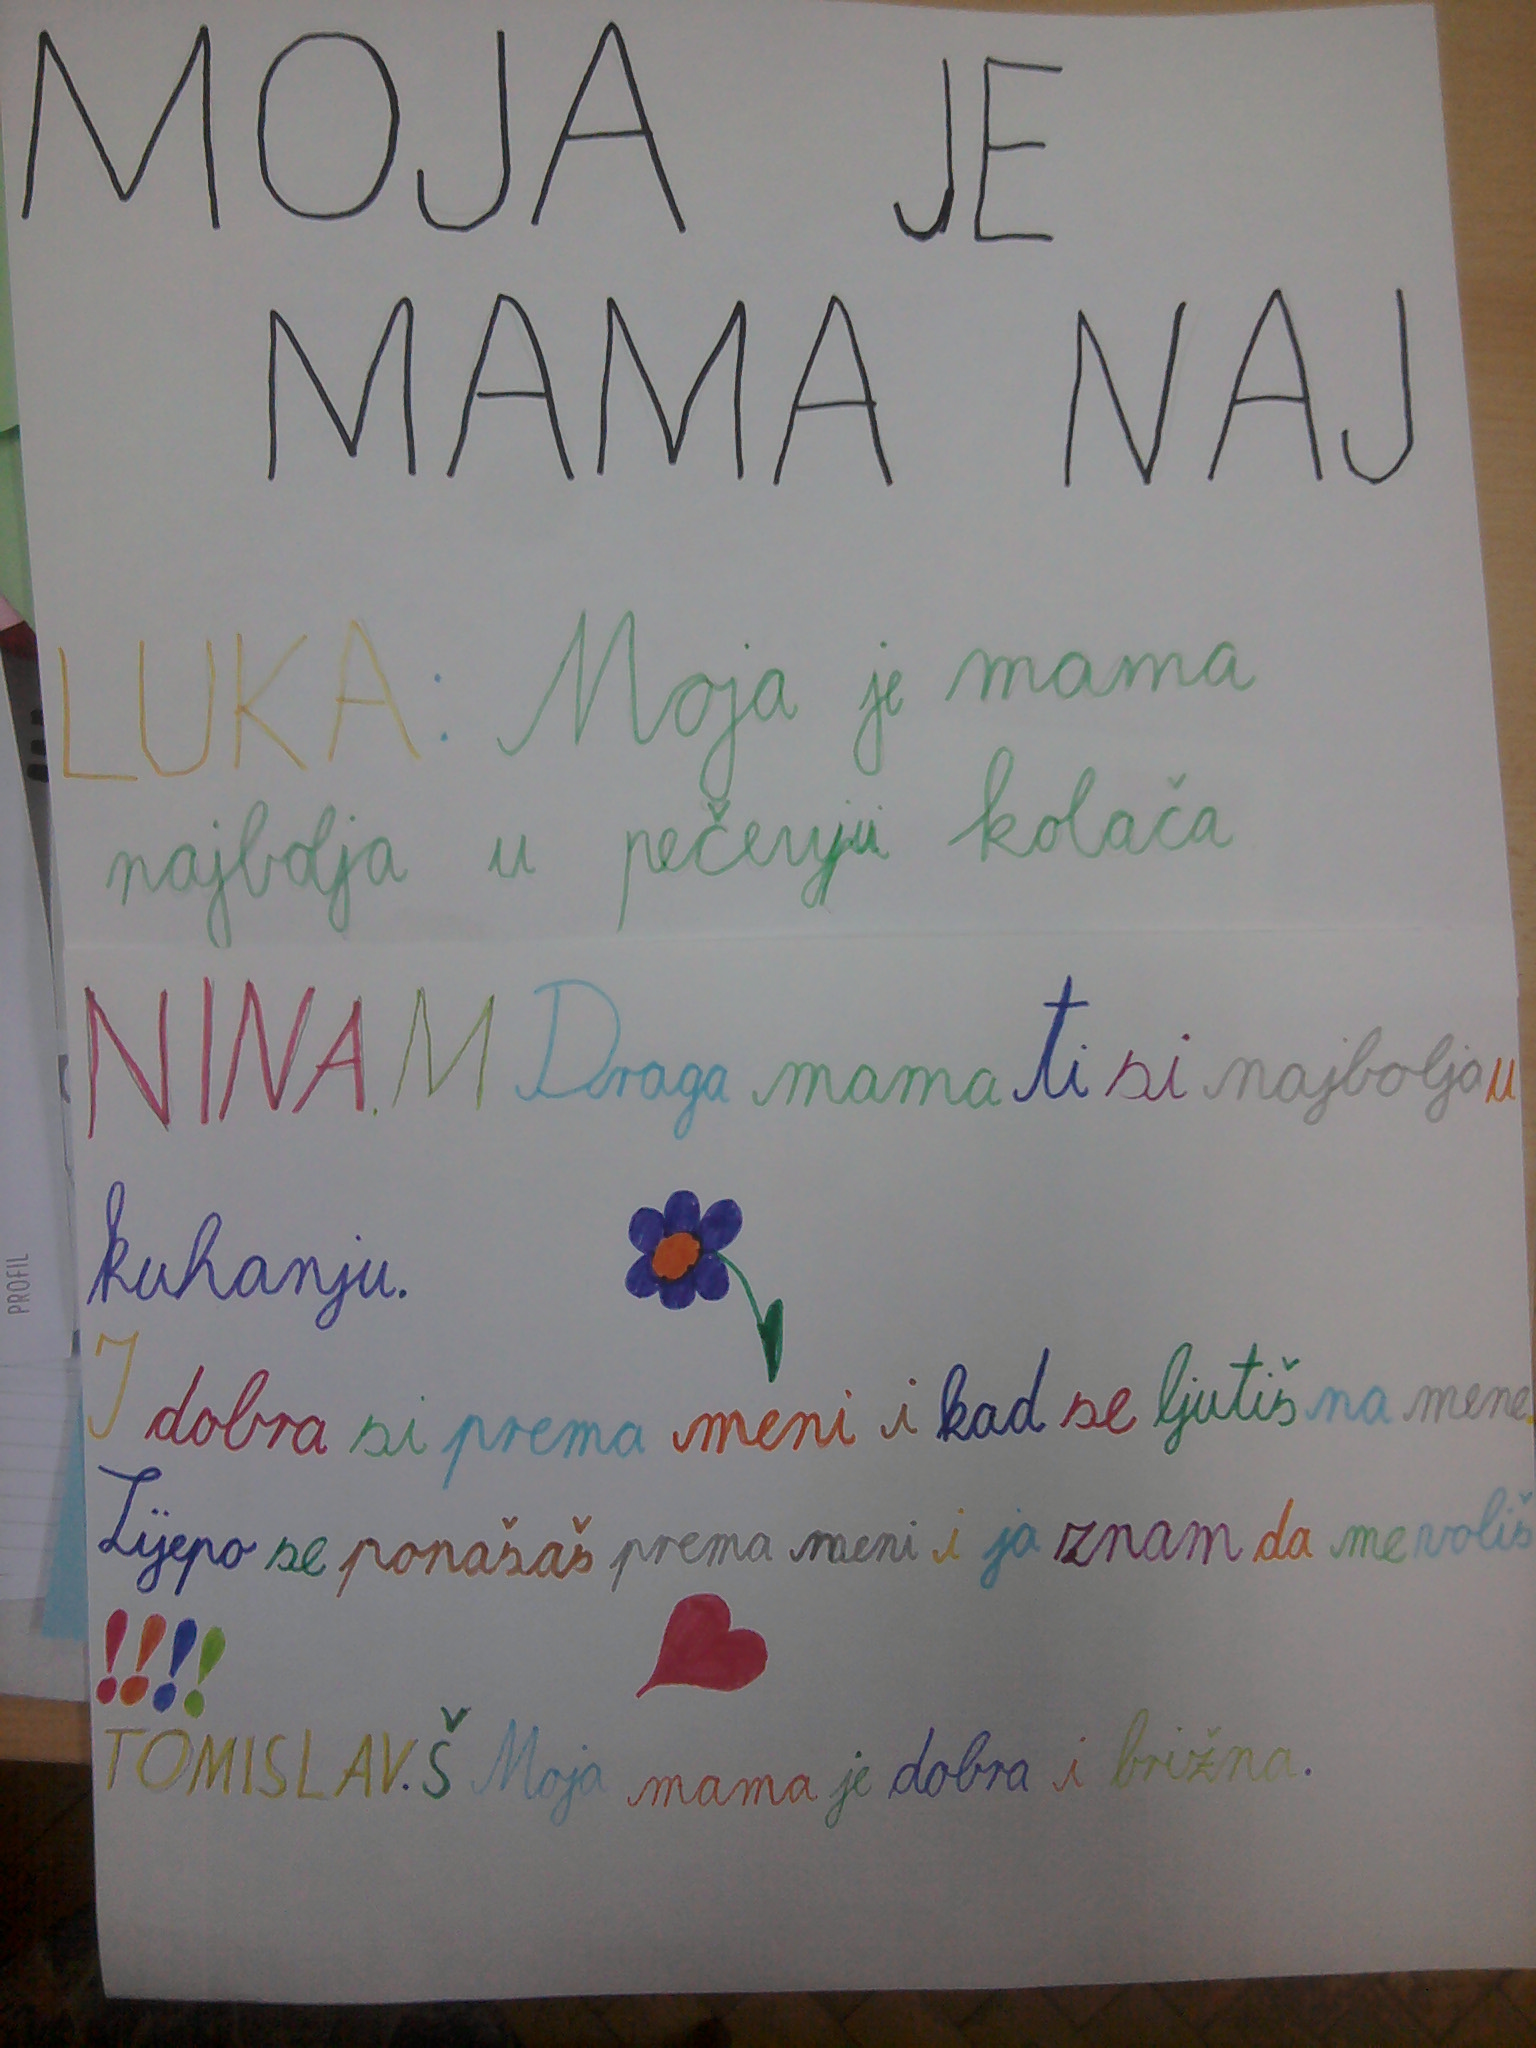 MOJA JE
MAMA NAJ
LUKA: Moja je mama
najbolja u pečenju kolača
NINA.M Draga mama ti si najbolja u
kuhanju.
I dobra si prema meni i kad se ljutiš na mene.
Lijepo se ponašaš prema meni i ja znam da me voliš
!!!!
TOMISLAV.Š Moja mama je dobra i brižna.
PROFIL